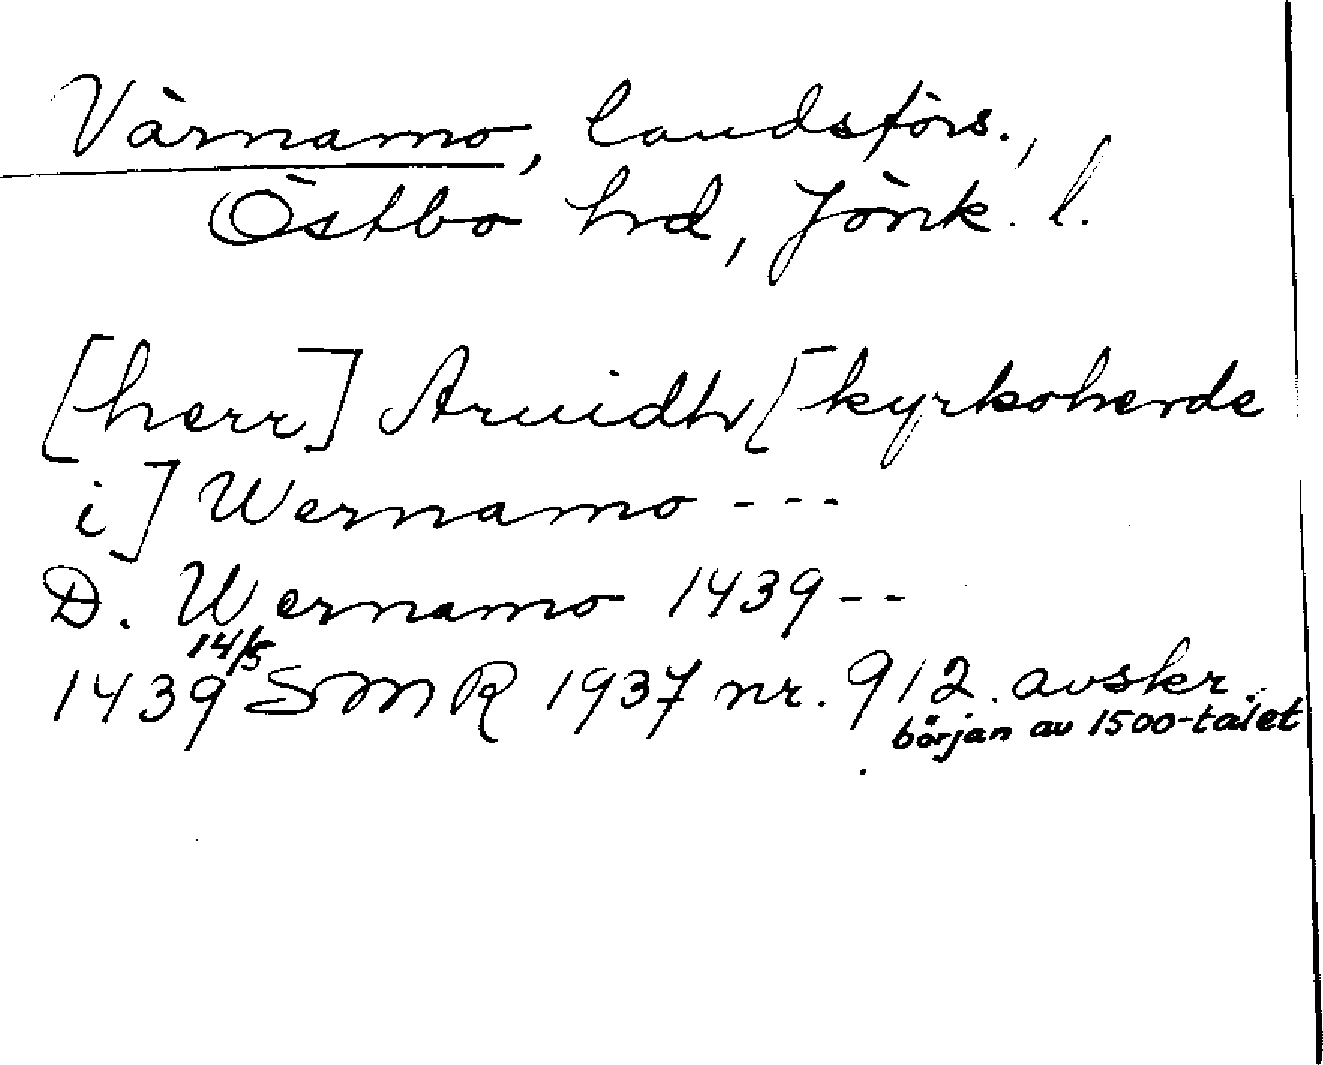 Värnamo, landsförs.,
Östbo hrd, Jönk. l.
[herr] Aruidh [kyrkoherde
i] Wernamo ---
D. Wernamo 1439 --
1439 14/5 SMR 1937 nr. 912. avskr.
början av 1500-talet